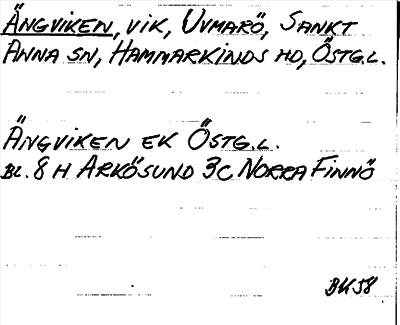 Ängviken, vik, Uvmarö, Sankt
Anna sn, Hammarkinds hd, Östg.l.
Ängviken EK Östg.l.
Bl. 8 H Arkösund 3c Norra Finnö
BH58